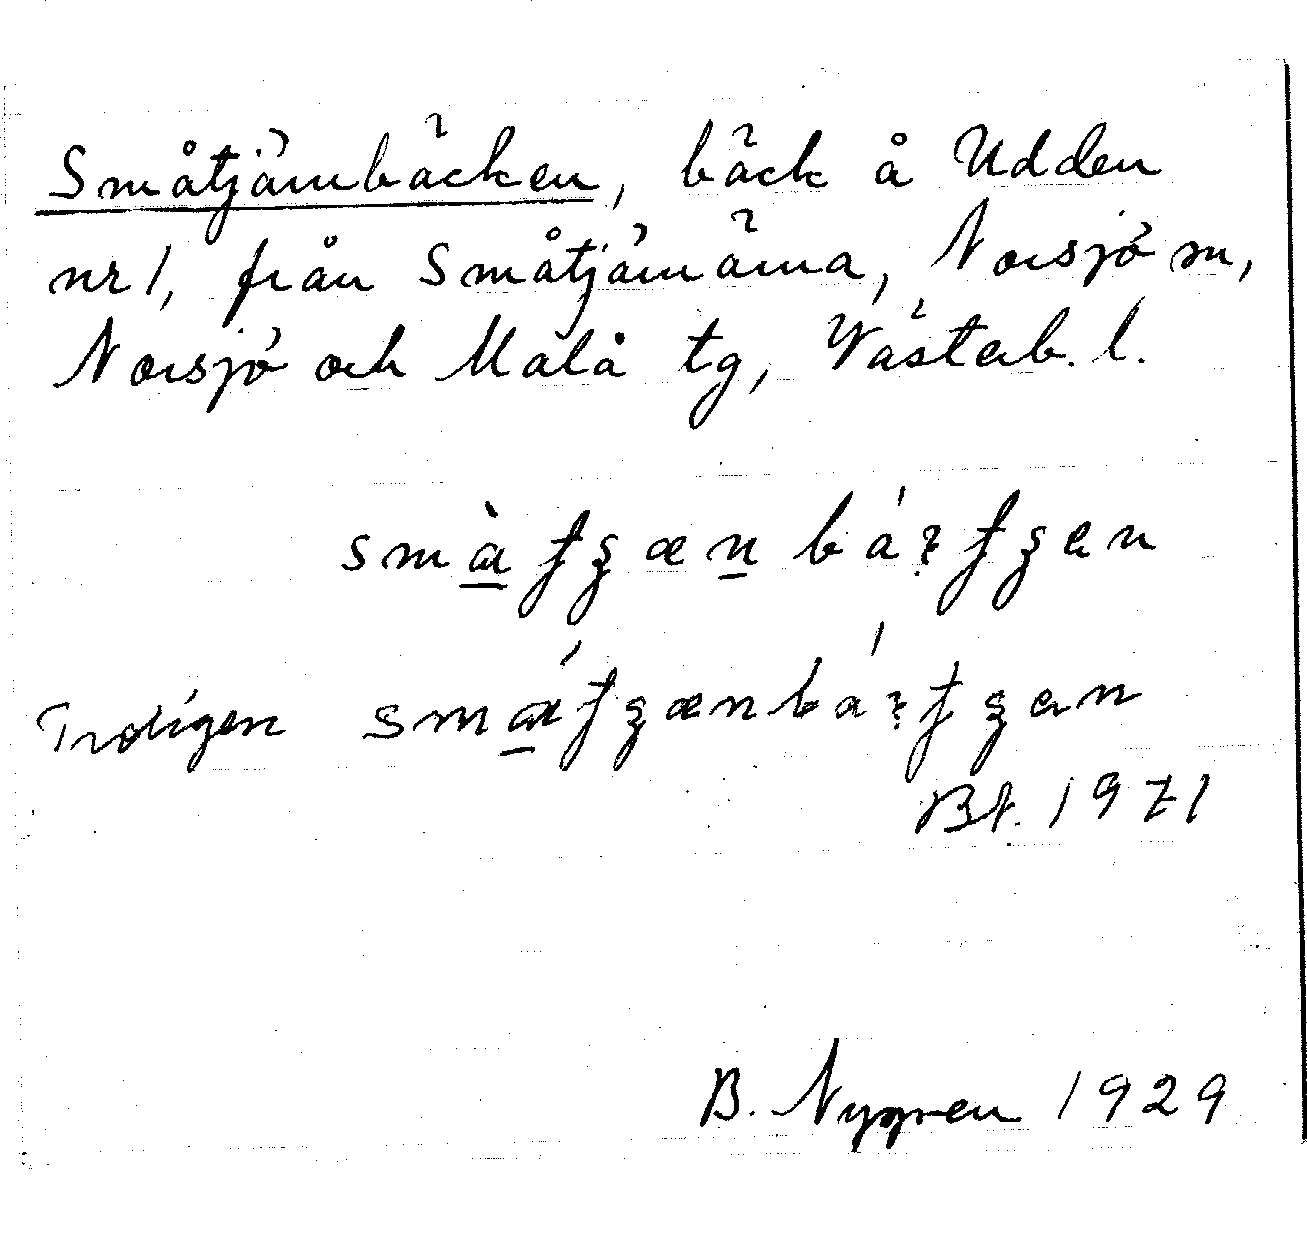 Småtjärnbäcken, bäck å Udden
nr 1, från Småtjärnarna, Norsjö sn,
Norsjö och Malå tg, Västerb. l.
Troligen
Bt. 1971
B. Nygren 1929